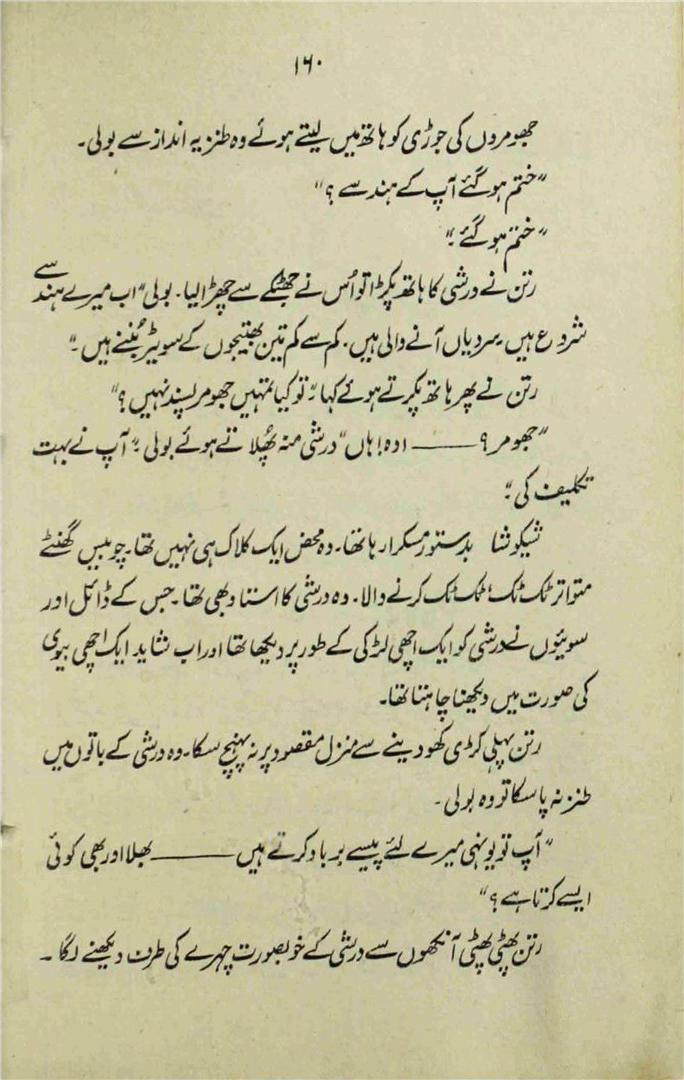 ۱۶۰
جھومروں کی جوڑی کو ہاتھ میں لیتے ہوئے وہ طنزیہ انداز سے بولی۔
"ختم ہو گئے آپ کے ہندسے ؟"
"ختم ہو گئے۔"
رتن نے درشی کا ہاتھ پکڑا تو اُس نے جھٹکے سے چھڑا لیا۔ بولی "اب میرے ہندسے
شروع ہیں۔ سردیاں آنے والی ہیں۔ کم سے کم تین بھتیجوں کے سویٹر بُننے ہیں۔"
رتن نے پھر ہاتھ پکڑتے ہوئے کہا "تو کیا تمہیں جھومر پسند نہیں ؟"
"جھومر ؟ ——— اوہ! ہاں" درشی منہ پھُلاتے ہوئے بولی "آپ نے بہت
تکلیف کی۔"
شیکوشا بدستور مسکرا رہا تھا۔ وہ محض ایک کلاک ہی نہیں تھا۔ چوبیس گھنٹے
متواتر ٹک ٹک، ٹک ٹک کرنے والا۔ وہ درشی کا استاد بھی تھا۔ جس کے ڈائل اور
سوئیوں نے درشی کو ایک اچھی لڑکی کے طور پر دیکھا تھا اور اب شاید ایک اچھی بیوی
کی صورت میں دیکھنا چاہتا تھا۔
رتن پہلی کڑی کھو دینے سے منزل مقصود پر نہ پہنچ سکا۔ وہ درشی کے باتوں میں
طنز نہ پا سکا تو وہ بولی۔
"آپ تو یونہی میرے لئے پیسے برباد کرتے ہیں ——— بھلا اور بھی کوئی
ایسے کرتا ہے ؟"
رتن پھٹی پھٹی آنکھوں سے درشی کے خوبصورت چہرے کی طرف دیکھنے لگا۔